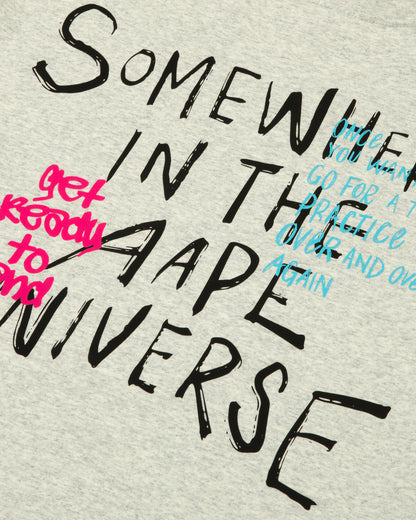 SOMEWHER
IN THE
AAPE
UNIVERSE
get
Ready
to
ONCE
YOU WAN
GO FOR A T
PRACTICE
OVER AND OVE
AGAIN